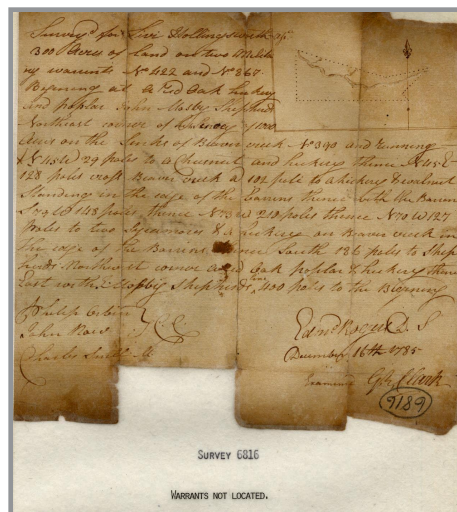 Survey'd for Levi Hollingsworth
300 Acres of land on two Milita
ry warrants No 422 and No 367
Begining at a Red Oak hickory
and poplar John Mosby Shepherds
Northeast corner of his Survey of 1000
Acres on the Forks of Beaver creek No 390 and running
N 45 W 29 poles to a Chesnut and hickory thence N 45 E
128 poles cross Beaver Creek a 102 pole to a hickory & walnut
Standing in the edge of the barrens thence with the Barrens
S 79 W 148 poles, thence N 73 W 210 poles thence N 70 W 127
Poles to two Sycamores & a hickory on Beaver creek in
the edge of the Barrens thence South 186 poles to Shep
herds Northwest corner a red Oak poplar & hickory thence
East with Mosby Shepherds 400 poles to the Begining
Philip
John Rous C.C.
Charles Smith M
Edmd Rogers D. S
December 16th 1785
Examined G R Clark
6816
SURVEY 6816
WARRANTS NOT LOCATED.